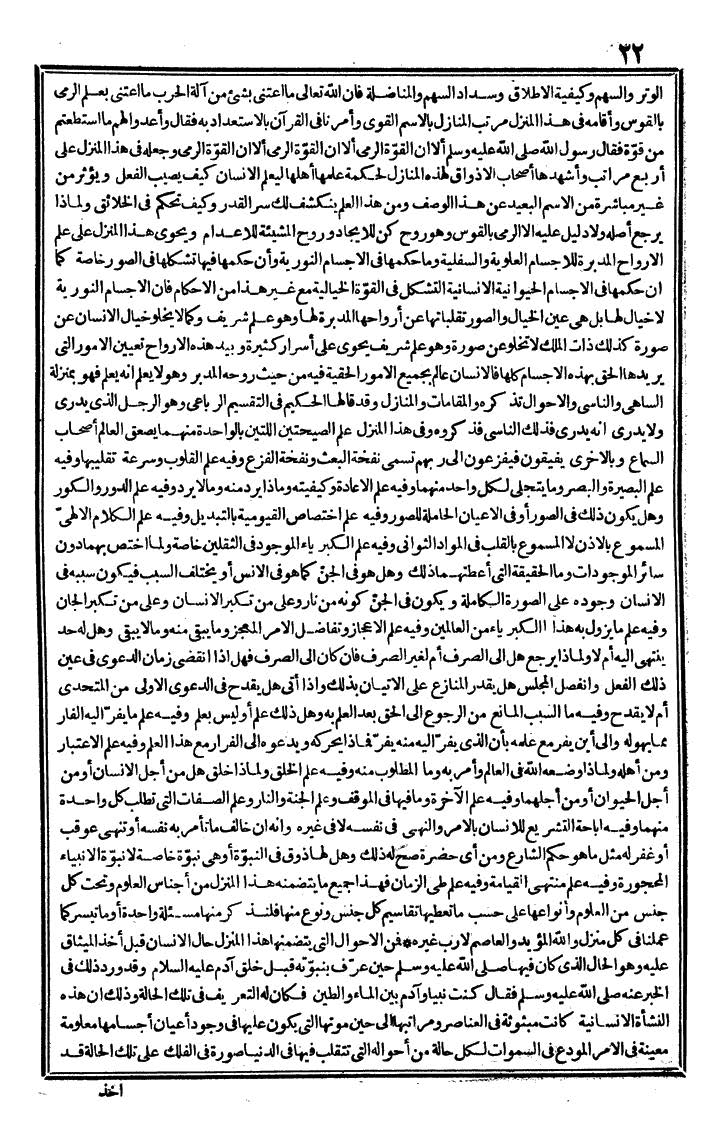 ٣٢
الوتر والسهم وكيفية الاطلاق وسداد السهم والمناضلة فان الله تعالى ما اعتنى بشئ من آلة الحرب ما اعتنى بعلم الرمى
بالقوس وأقامه فى هذا المنزل مرتب المنازل بالاسم القوى وأمرنا فى القرآن بالاستعداد به فقال وأعدوا لهم ما استطعتم
من قوّة فقال رسول الله صلى الله عليه وسلم ألا ان القوّة الرمى ألا ان القوّة الرمى ألا ان القوّة الرمى وجعله فى هذا المنزل على
أربع مراتب وأشهدها أصحاب الاذواق لهذه المنازل لحكمة علمها أهلها ليعلم الانسان كيف يصيب الفعل ويؤثر من
غير مباشرة من الاسم البعيد عن هذا الوصف ومن هذا العلم ينكشف لك سر القدر وكيف تحكم فى الخلائق ولماذا
يرجع أصله ولا دليل عليه الا الرمى بالقوس وهو روح كن للايجاد وروح المشيئة للاعدام ويحوى هذا المنزل على علم
الارواح المدبرة للاجسام العلوية والسفلية وما حكمها فى الاجسام النورية وأن حكمها فيها تشكلها فى الصور خاصة كما
ان حكمها فى الاجسام الحيوانية الانسانية التشكل فى القوّة الخيالية مع غير هذا من الاحكام فان الاجسام النورية
لا خيال لها بل هى عين الخيال والصور تقلباتها عن أرواحها المدبرة لها وهو علم شريف وكما لا يخلو خيال الانسان عن
صورة كذلك ذات الملك لا تخلو عن صورة وهو علم شريف يحوى على أسرار كثيرة وبيد هذه الارواح تعيين الامور التى
يريدها الحق بهذه الاجسام كلها فالانسان عالم بجميع الامور الحقية فيه من حيث روحه المدبر وهو لا يعلم انه يعلم فهو بمنزلة
الساهى والناسى والاحوال تذكره والمقامات والمنازل وقد قالها الحكيم فى التقسيم الرباعى وهو الرجل الذى يدرى
ولا يدرى انه يدرى فذلك الناسى فذكروه وفى هذا المنزل علم الصيحتين اللتين بالواحدة منهما يصعق العالم أصحاب
السماع وبالاخرى يفيقون فيفزعون الى ربهم تسمى نفخة البعث ونفخة الفزع وفيه علم القلوب وسرعة تقليبها وفيه
علم البصيرة والبصر وما يتجلى لكل واحد منهما وفيه علم الاعادة وكيفيته وماذا يرد منه وما لا يرد وفيه علم الدور والكور
وهل يكون ذلك فى الصور أو فى الاعيان الحاملة للصور وفيه علم اختصاص القيومية بالتبديل وفيه علم الكلام الالهىّ
المسموع بالاذن لا المسموع بالقلب فى المواد الثوانى وفيه علم الكبرياء الموجود فى الثقلين خاصة ولما اختص بهما دون
سائر الموجودات وما الحقيقة التى أعطتهما ذلك وهل هو فى الجنّ كما هو فى الانس أو يختلف السبب فيكون سببه فى
الانسان وجوده على الصورة الكاملة ويكون فى الجنّ كونه من نار وعلى من تكبر الانسان وعلى من تكبر الجان
وفيه علم ما يزول به هذا الكبرياء من العالمين وفيه علم الاعجاز وتفاضل الامر المعجز وما يبقى منه وما لا يبقى وهل له حد
ينتهى اليه أم لا ولماذا يرجع هل الى الصرف أم لغير الصرف فان كان الى الصرف فهل اذا انقضى زمان الدعوى فى عين
ذلك الفعل وانفصل المجلس هل يقدر المنازع على الاتيان بذلك واذا أتى هل يقدح فى الدعوى الاولى من المتحدى
أم لا يقدح وفيه ما السبب المانع من الرجوع الى الحق بعد العلم به وهل ذلك علم أو ليس بعلم وفيه علم ما يفرّ اليه الفار
مما يهوله والى أين يفر مع علمه بأن الذى يفرّ اليه منه يفرّ فماذا يحركه ويدعوه الى الفرار مع هذا العلم وفيه علم الاعتبار
ومن أهله ولماذا وضعه الله فى العالم وأمر به وما المطلوب منه وفيه علم الخلق ولماذا خلق هل من أجل الانسان أو من
أجل الحيوان أو من أجلهما وفيه علم الآخرة وما فيها فى الموقف وعلم الجنة والنار وعلم الصفات التى تطلب كل واحدة
منهما وفيه اباحة التشريع للانسان بالامر والنهى فى نفسه لا فى غيره وانه ان خالف ما تأمر به نفسه أو تنهى عوقب
أو غفر له مثل ما هو حكم الشارع ومن أى حضرة صح له ذلك وهل لها ذوق فى النبوّة أو هى نبوّة خاصة لا نبوّة الانبياء
المحجورة وفيه علم منتهى القيامة وفيه علم طى الزمان فهذا جميع ما يتضمنه هذا المنزل من أجناس العلوم وتحت كل
جنس من العلوم وأنواعها على حسب ما تعطيها تقاسيم كل جنس ونوع منها فلنذكر منها مسئلة واحدة أو ما تيسر كما
عملنا فى كل منزل والله المؤيد والعاصم لا رب غيره * فن الاحوال التى يتضمنها هذا المنزل حال الانسان قبل أخذ الميثاق
عليه وهو الحال الذى كان فيها صلى الله عليه وسلم حين عرّف بنبوّته قبل خلق آدم عليه السلام وقد ورد ذلك فى
الخبر عنه صلى الله عليه وسلم فقال كنت نبيا وآدم بين الماء والطين فكان له التعريف فى تلك الحالة وذلك ان هذه
النشأة الانسانية كانت مبثوثة فى العناصر ومراتبها الى حين موتها التى يكون عليها فى وجود أعيان أجسامها معلومة
معينة فى الامر المودع فى السموات لكل حالة من أحواله التى تتقلب فيها فى الدنيا صورة فى الفلك على تلك الحالة قد
اخذ